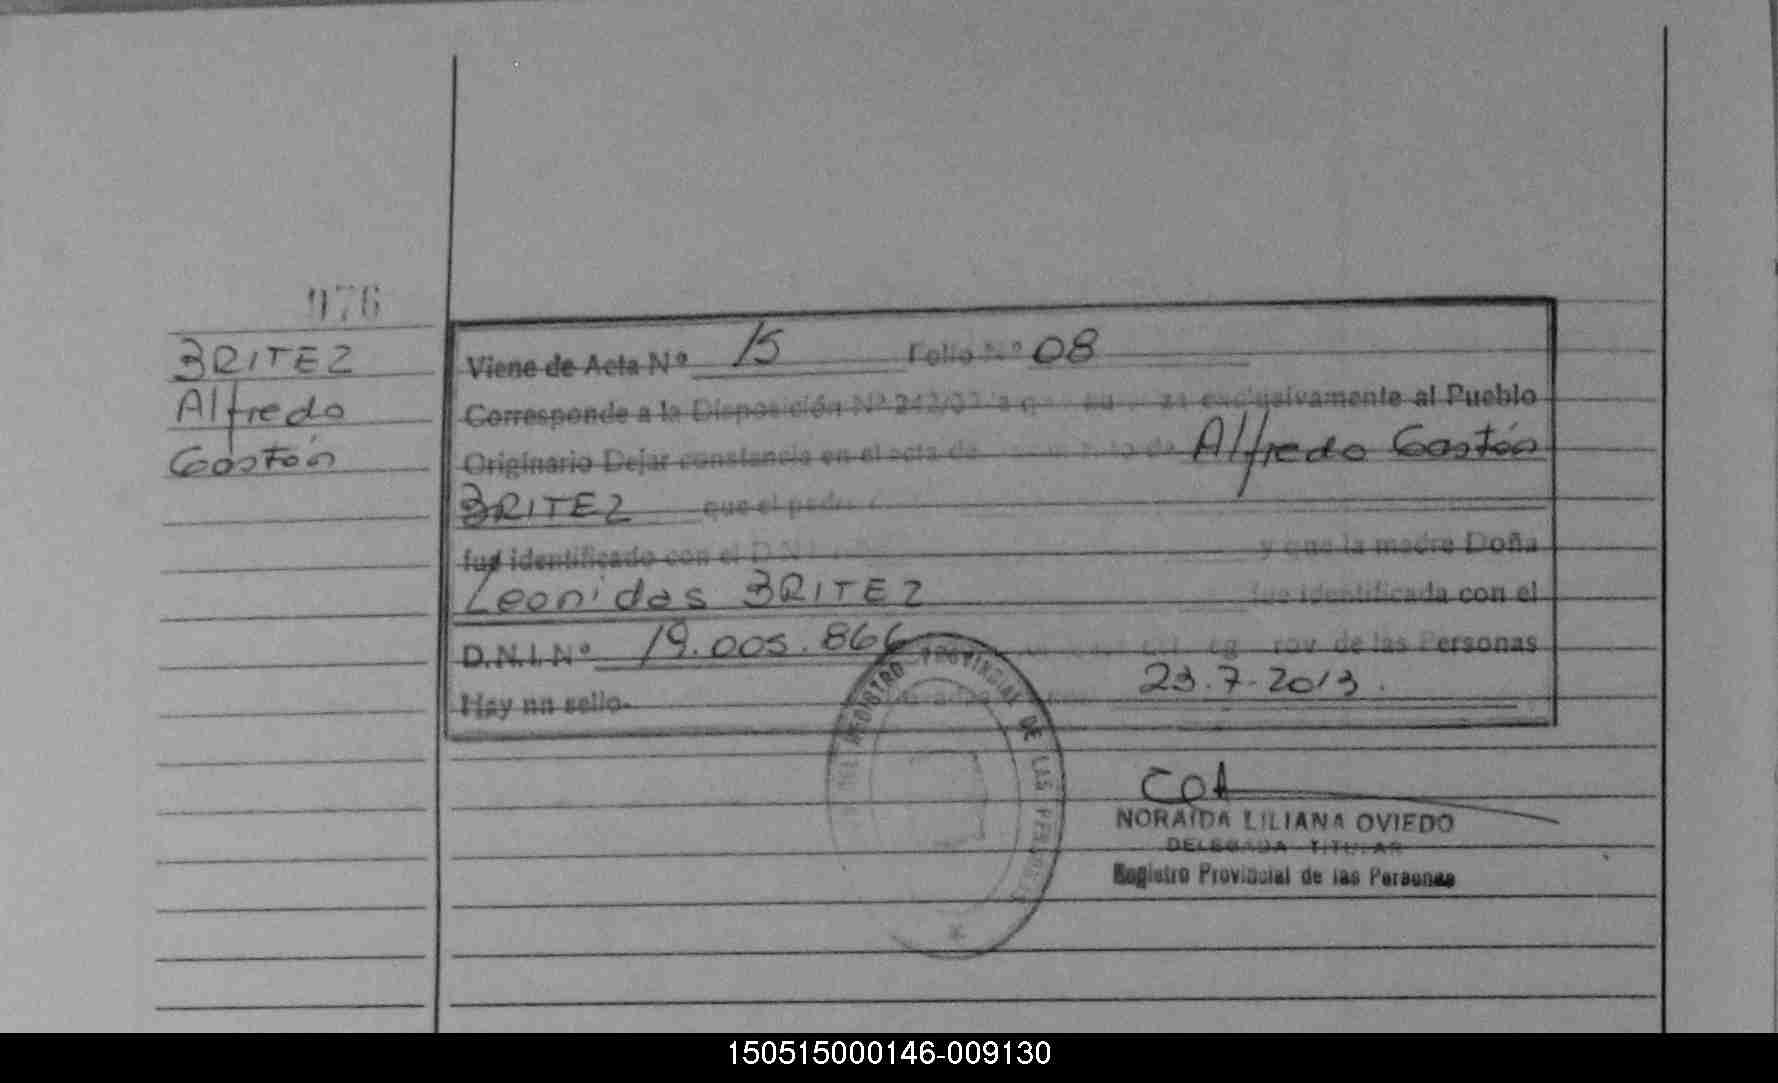 976
BRITEZ
Alfredo
Gastón
Viene de Acta Nº 15 Folio Nº 08
Corresponde a la Disposición Nº exclusivamente al Pueblo
Originario Dejar constancia en el acta de de Alfredo Gastón
BRITEZ que el padre
fue identificado con el D.N.I. y que la madre Doña
Leonidas BRITEZ fue identificada con el
D.N.I. Nº 19.005.866 de las Personas
Hay un sello. 23.7.2013.
REGISTRO PROVINCIAL DE LAS PERSONAS
NORAIDA LILIANA OVIEDO
DELEGADA TITULAR
Registro Provincial de las Personas
150515000146-009130